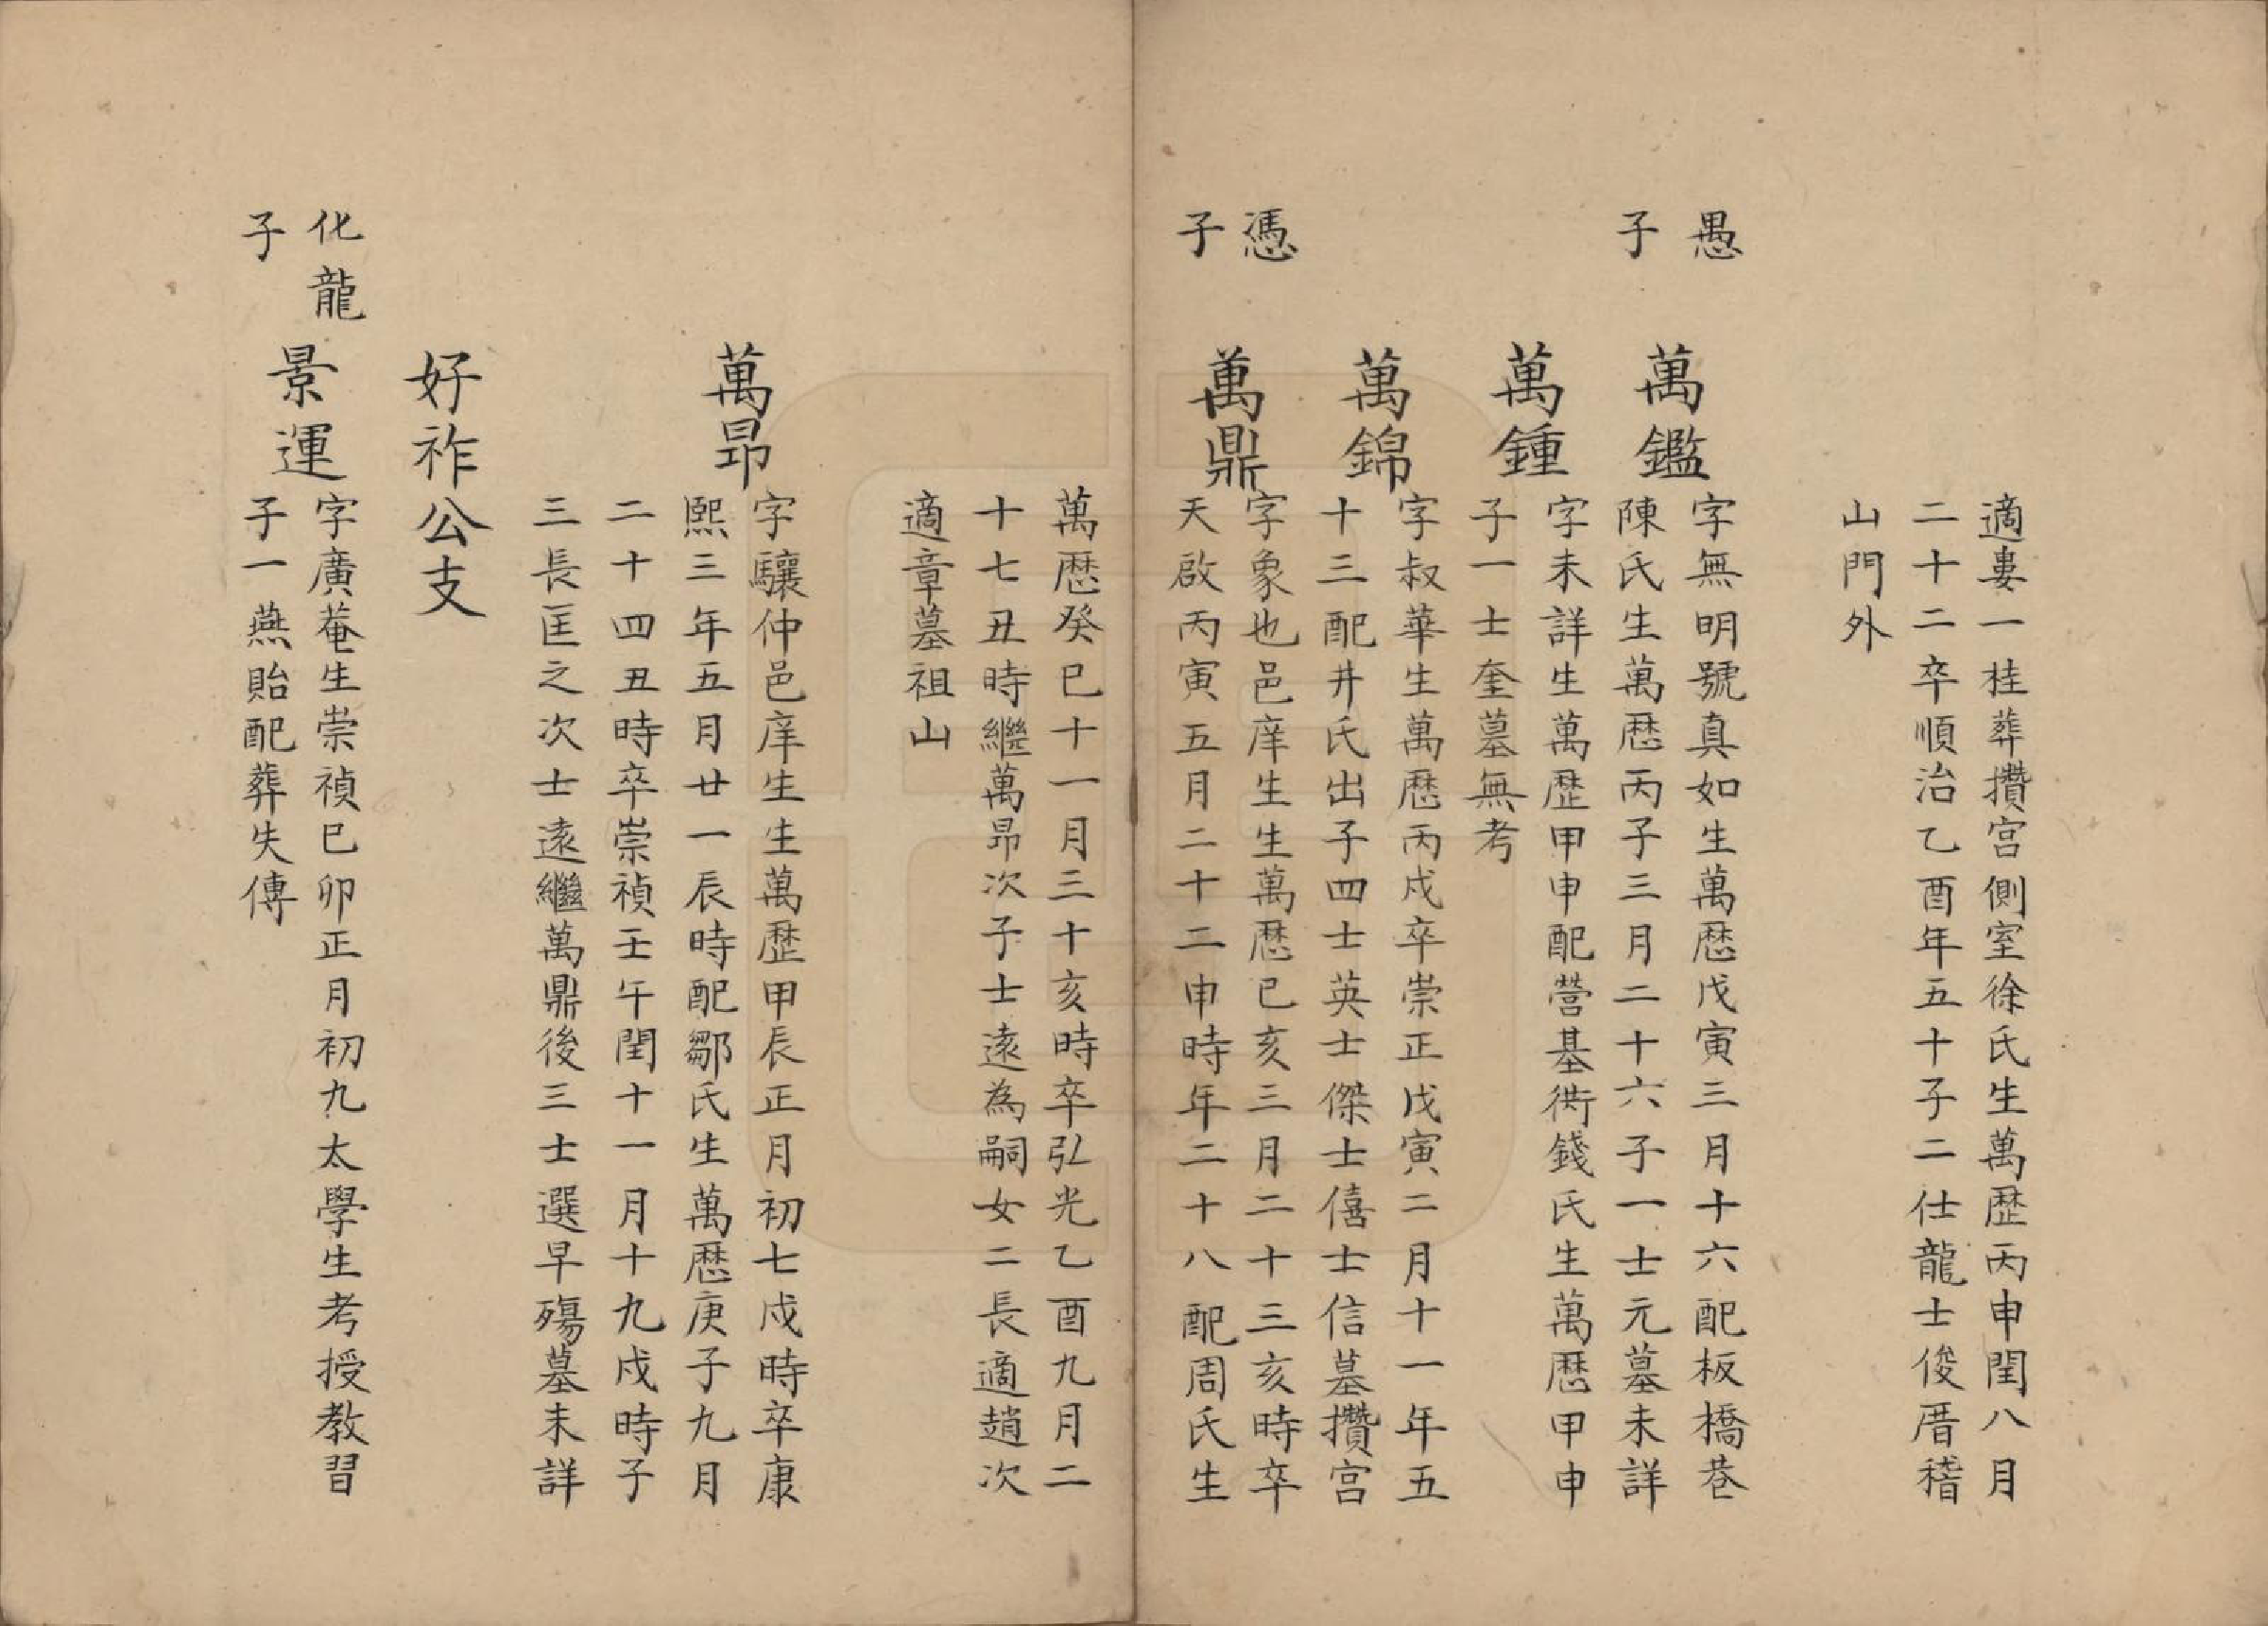 適婁一桂葬攢宮側室徐氏生萬歷丙申閏八月
二十二卒順治乙酉年五十子二仕龍士俊厝稽
山門外
愚
子
萬鑑
字無明號真如生萬歷戊寅三月十六配板橋巷
陳氏生萬歷丙子三月二十六子一士元墓未詳
萬鍾
字未詳生萬歷甲申配營基衖錢氏生萬歷甲申
子一士奎墓無考
萬錦
字叔華生萬歷丙戌卒崇正戊寅二月十一年五
十三配井氏出子四士英士傑士僖士信墓攢宮
憑
子
萬鼎
字象也邑庠生生萬歷己亥三月二十三亥時卒
天啟丙寅五月二十二申時年二十八配周氏生
萬歷癸巳十一月三十亥時卒弘光乙酉九月二
十七丑時繼萬昂次子士遠為嗣女二長適趙次
適章墓祖山
萬昂
字驤仲邑庠生生萬歷甲辰正月初七戌時卒康
熙三年五月廿一辰時配鄒氏生萬歷庚子九月
二十四丑時卒崇禎壬午閏十一月十九戌時子
三長匡之次士遠繼萬鼎後三士選早殤墓未詳
好祚公支
化龍
子
景運
字廣菴生崇禎己卯正月初九太學生考授教習
子一燕貽配葬失傳